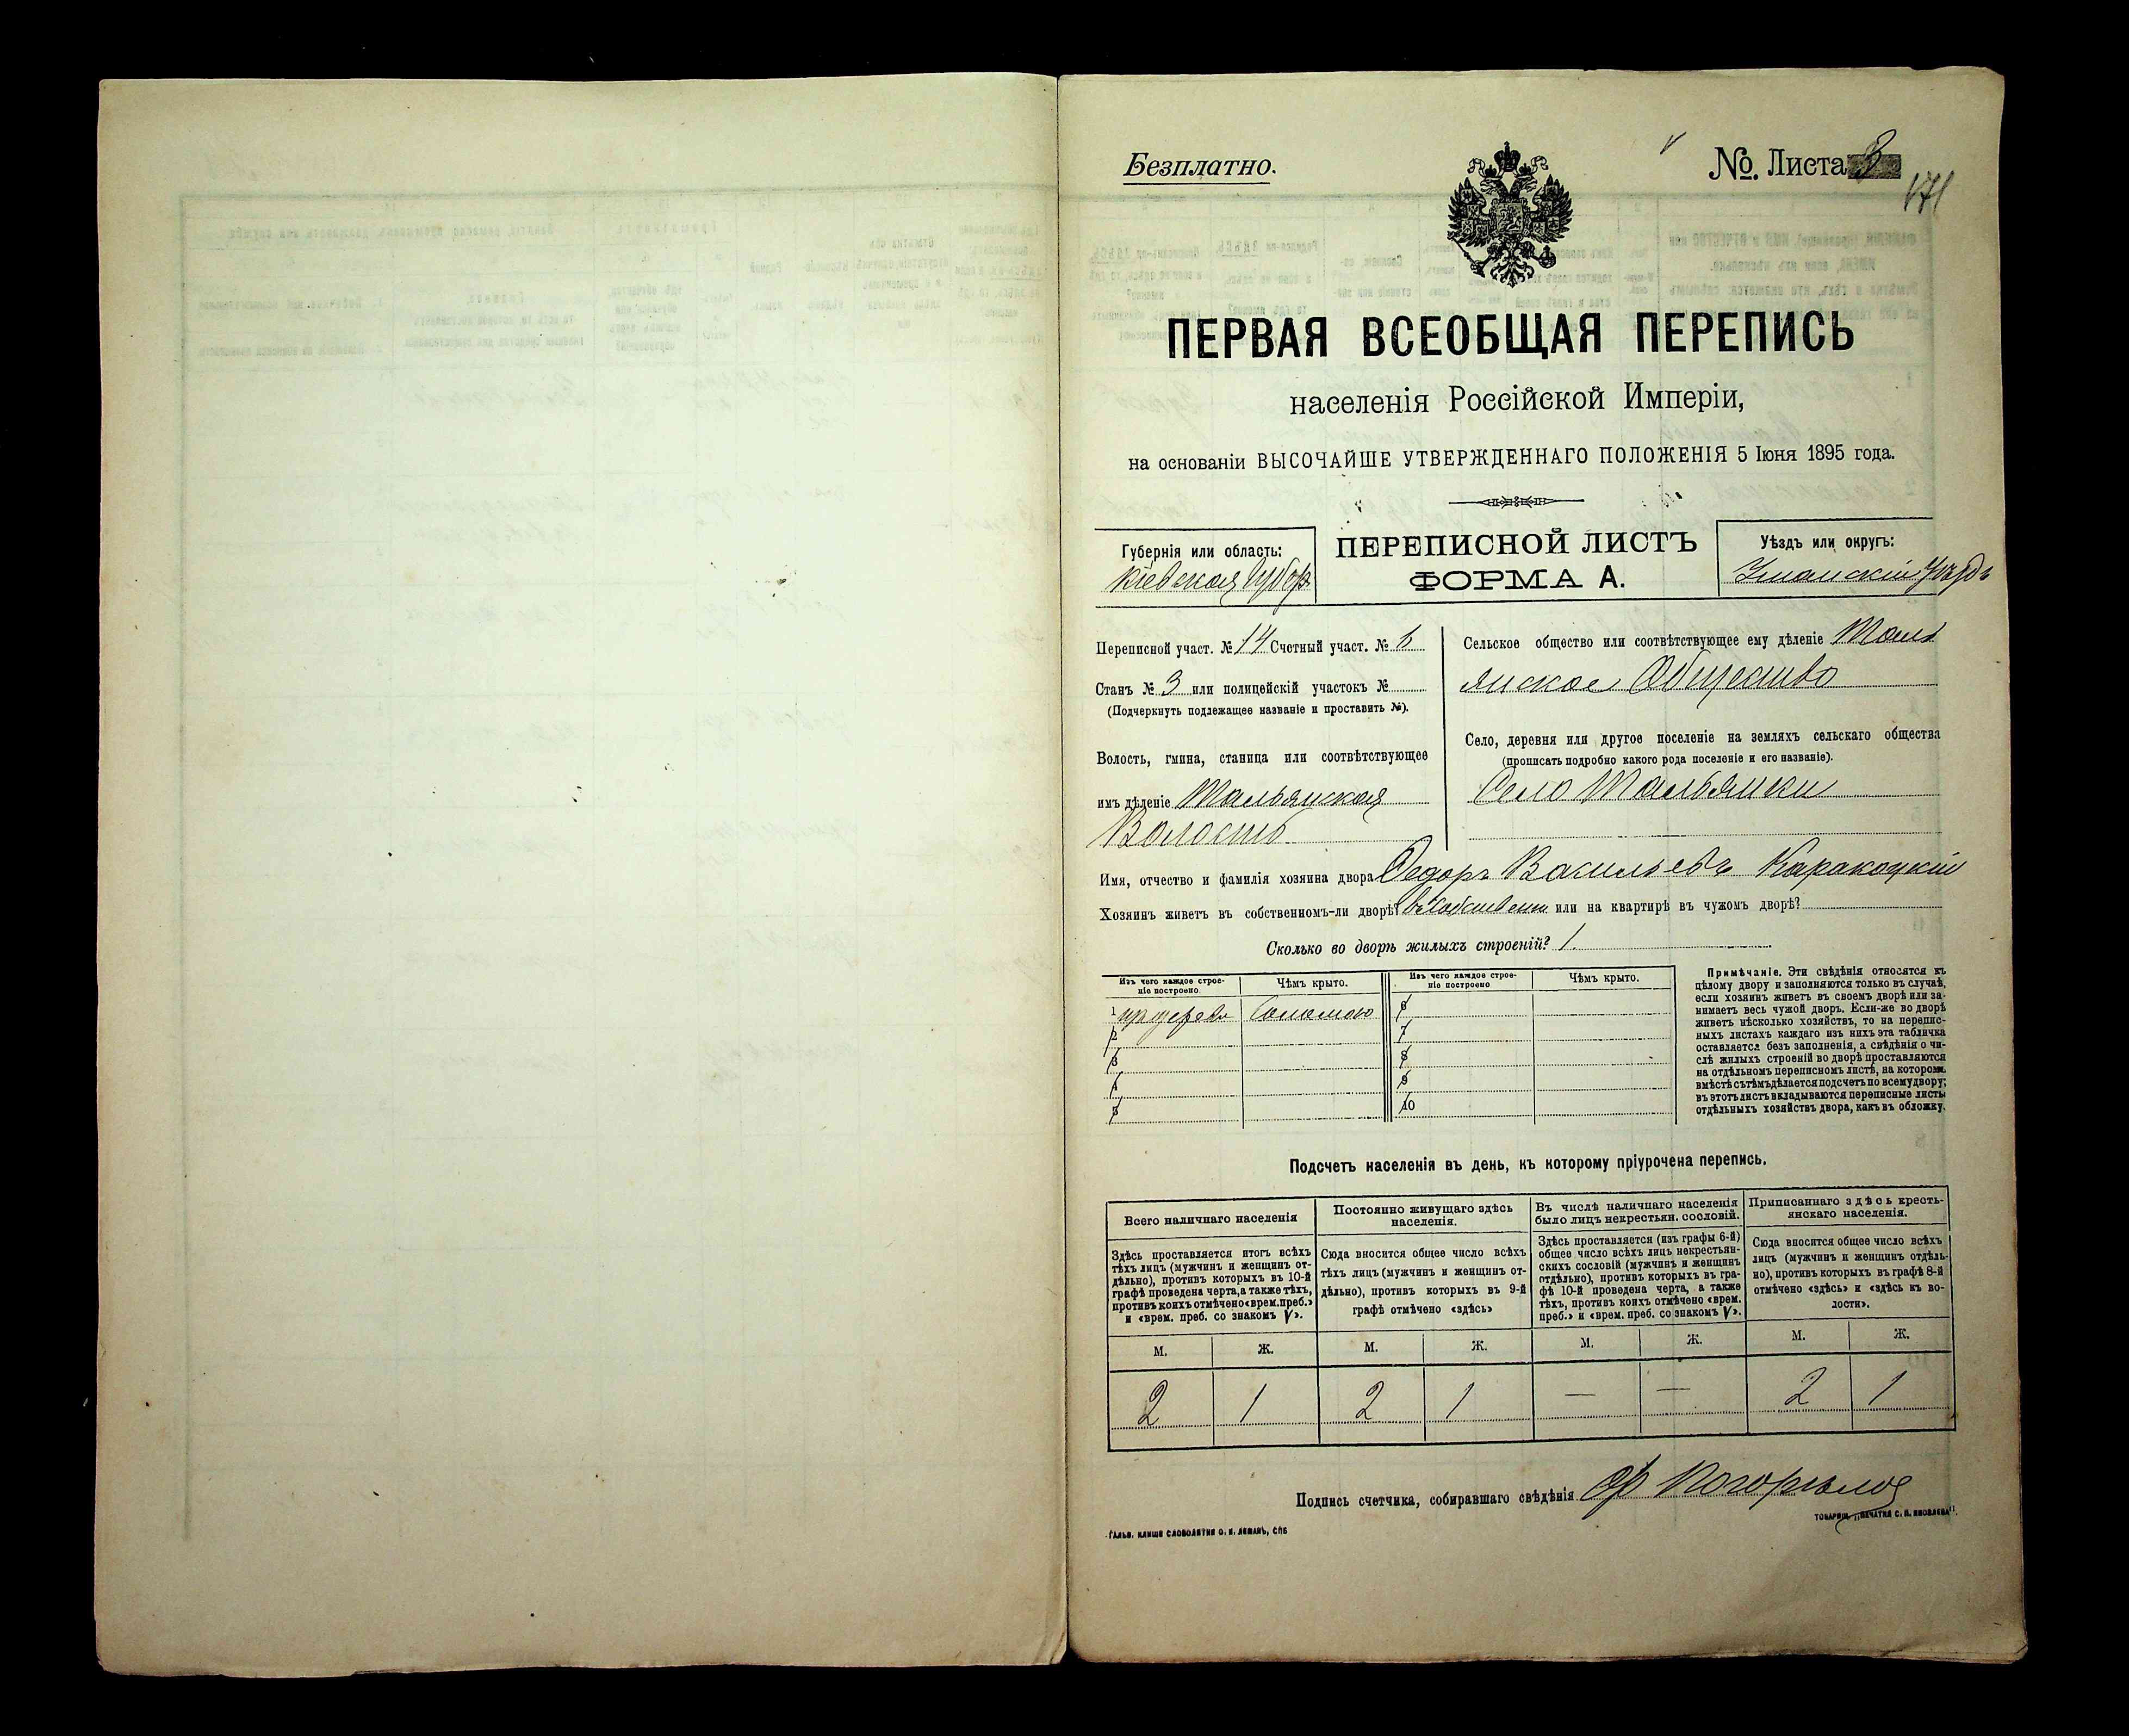 Безплатно.
№. Листа 3
171
ПЕРВАЯ ВСЕОБЩАЯ ПЕРЕПИСЬ
населенія Россійской Имперіи,
на основаніи ВЫСОЧАЙШЕ УТВЕРЖДЕННАГО ПОЛОЖЕНІЯ 5 Іюня 1895 года.
Губернія или область:
Кіевская Губер
ПЕРЕПИСНОЙ ЛИСТЪ
ФОРМА А.
Уѣздъ или округъ:
Уманскій Уѣздъ
Переписной участ. № 14 Счетный участ. №
Станъ № 3 или полицейскій участокъ №
(Подчеркнуть подлежащее названіе и проставить №).
Волость, гмина, станица или соотвѣтствующее
имъ дѣленіе Тальянская
Волость
Сельское общество или соотвѣтствующее ему дѣленіе Таль
янское Общество
Село, деревня или другое поселеніе на земляхъ сельскаго общества
(прописать подробно какого рода поселеніе и его названіе).
Село Тальянки
Имя, отчество и фамилія хозяина двора Федоръ Васильевъ Каракоцкій
Хозяинъ живетъ въ собственномъ-ли дворѣ? въ собствен или на квартирѣ въ чужомъ дворѣ?
Сколько во дворѣ жилыхъ строеній? 1.
Изъ чего каждое строе-
ніе построено.
Чѣмъ крыто.
Изъ чего каждое строе-
ніе построено
Чѣмъ крыто.
1 Соломою 6
2 7
3 8
4 9
5 10
Примѣчаніе. Эти свѣдѣнія относятся къ
цѣлому двору и заполняются только въ случаѣ,
если хозяинъ живетъ въ своемъ дворѣ или за-
нимаетъ весь чужой дворъ. Если-же во дворѣ
живетъ нѣсколько хозяйствъ, то на перепис-
ныхъ листахъ каждаго изъ нихъ эта табличка
оставляется безъ заполненія, а свѣдѣнія о чи-
слѣ жилыхъ строеній во дворѣ проставляются
на отдѣльномъ переписномъ листѣ, на которомъ
вмѣстѣ съ тѣмъ дѣлается подсчетъ по всему двору;
въ этотъ листъ вкладываются переписные листы
отдѣльныхъ хозяйствъ двора, какъ въ обложку.
Подсчетъ населенія въ день, къ которому пріурочена перепись.
Всего наличнаго населенія
Здѣсь проставляется итогъ всѣхъ
тѣхъ лицъ (мужчинъ и женщинъ от-
дѣльно), противъ которыхъ въ 10-й
графѣ проведена черта, а также тѣхъ,
противъ коихъ отмѣчено «врем. преб.»
и «врем. преб. со знакомъ V».
Постоянно живущаго здѣсь
населенія.
Сюда вносится общее число всѣхъ
тѣхъ лицъ (мужчинъ и женщинъ от-
дѣльно), противъ которыхъ въ 9-й
графѣ отмѣчено «здѣсь»
Въ числѣ наличнаго населенія
было лицъ некрестьян. сословій.
Здѣсь проставляется (изъ графы 6-й)
общее число всѣхъ лицъ некрестьян-
скихъ сословій (мужчинъ и женщинъ
отдѣльно), противъ которыхъ въ гра-
фѣ 10-й проведена черта, а также
тѣхъ, противъ коихъ отмѣчено «врем.
преб.» и «врем. преб. со знакомъ V».
Приписаннаго здѣсь кресть-
янскаго населенія.
Сюда вносится общее число всѣхъ
лицъ (мужчинъ и женщинъ отдѣль-
но), противъ которыхъ въ графѣ 8-й
отмѣчено «здѣсь» и «здѣсь къ во-
лости».
М. Ж. М. Ж. М. Ж. М. Ж.
2 1 2 1 — — 2 1
Подпись счетчика, собиравшаго свѣдѣнія
ГАЛЬВ. КЛИШЕ СЛОВОЛИТНИ О. И. ЛЕМАНЪ, СПБ
ТОВАРИЩ. „ПЕЧАТНЯ С. П. ЯКОВЛЕВА".